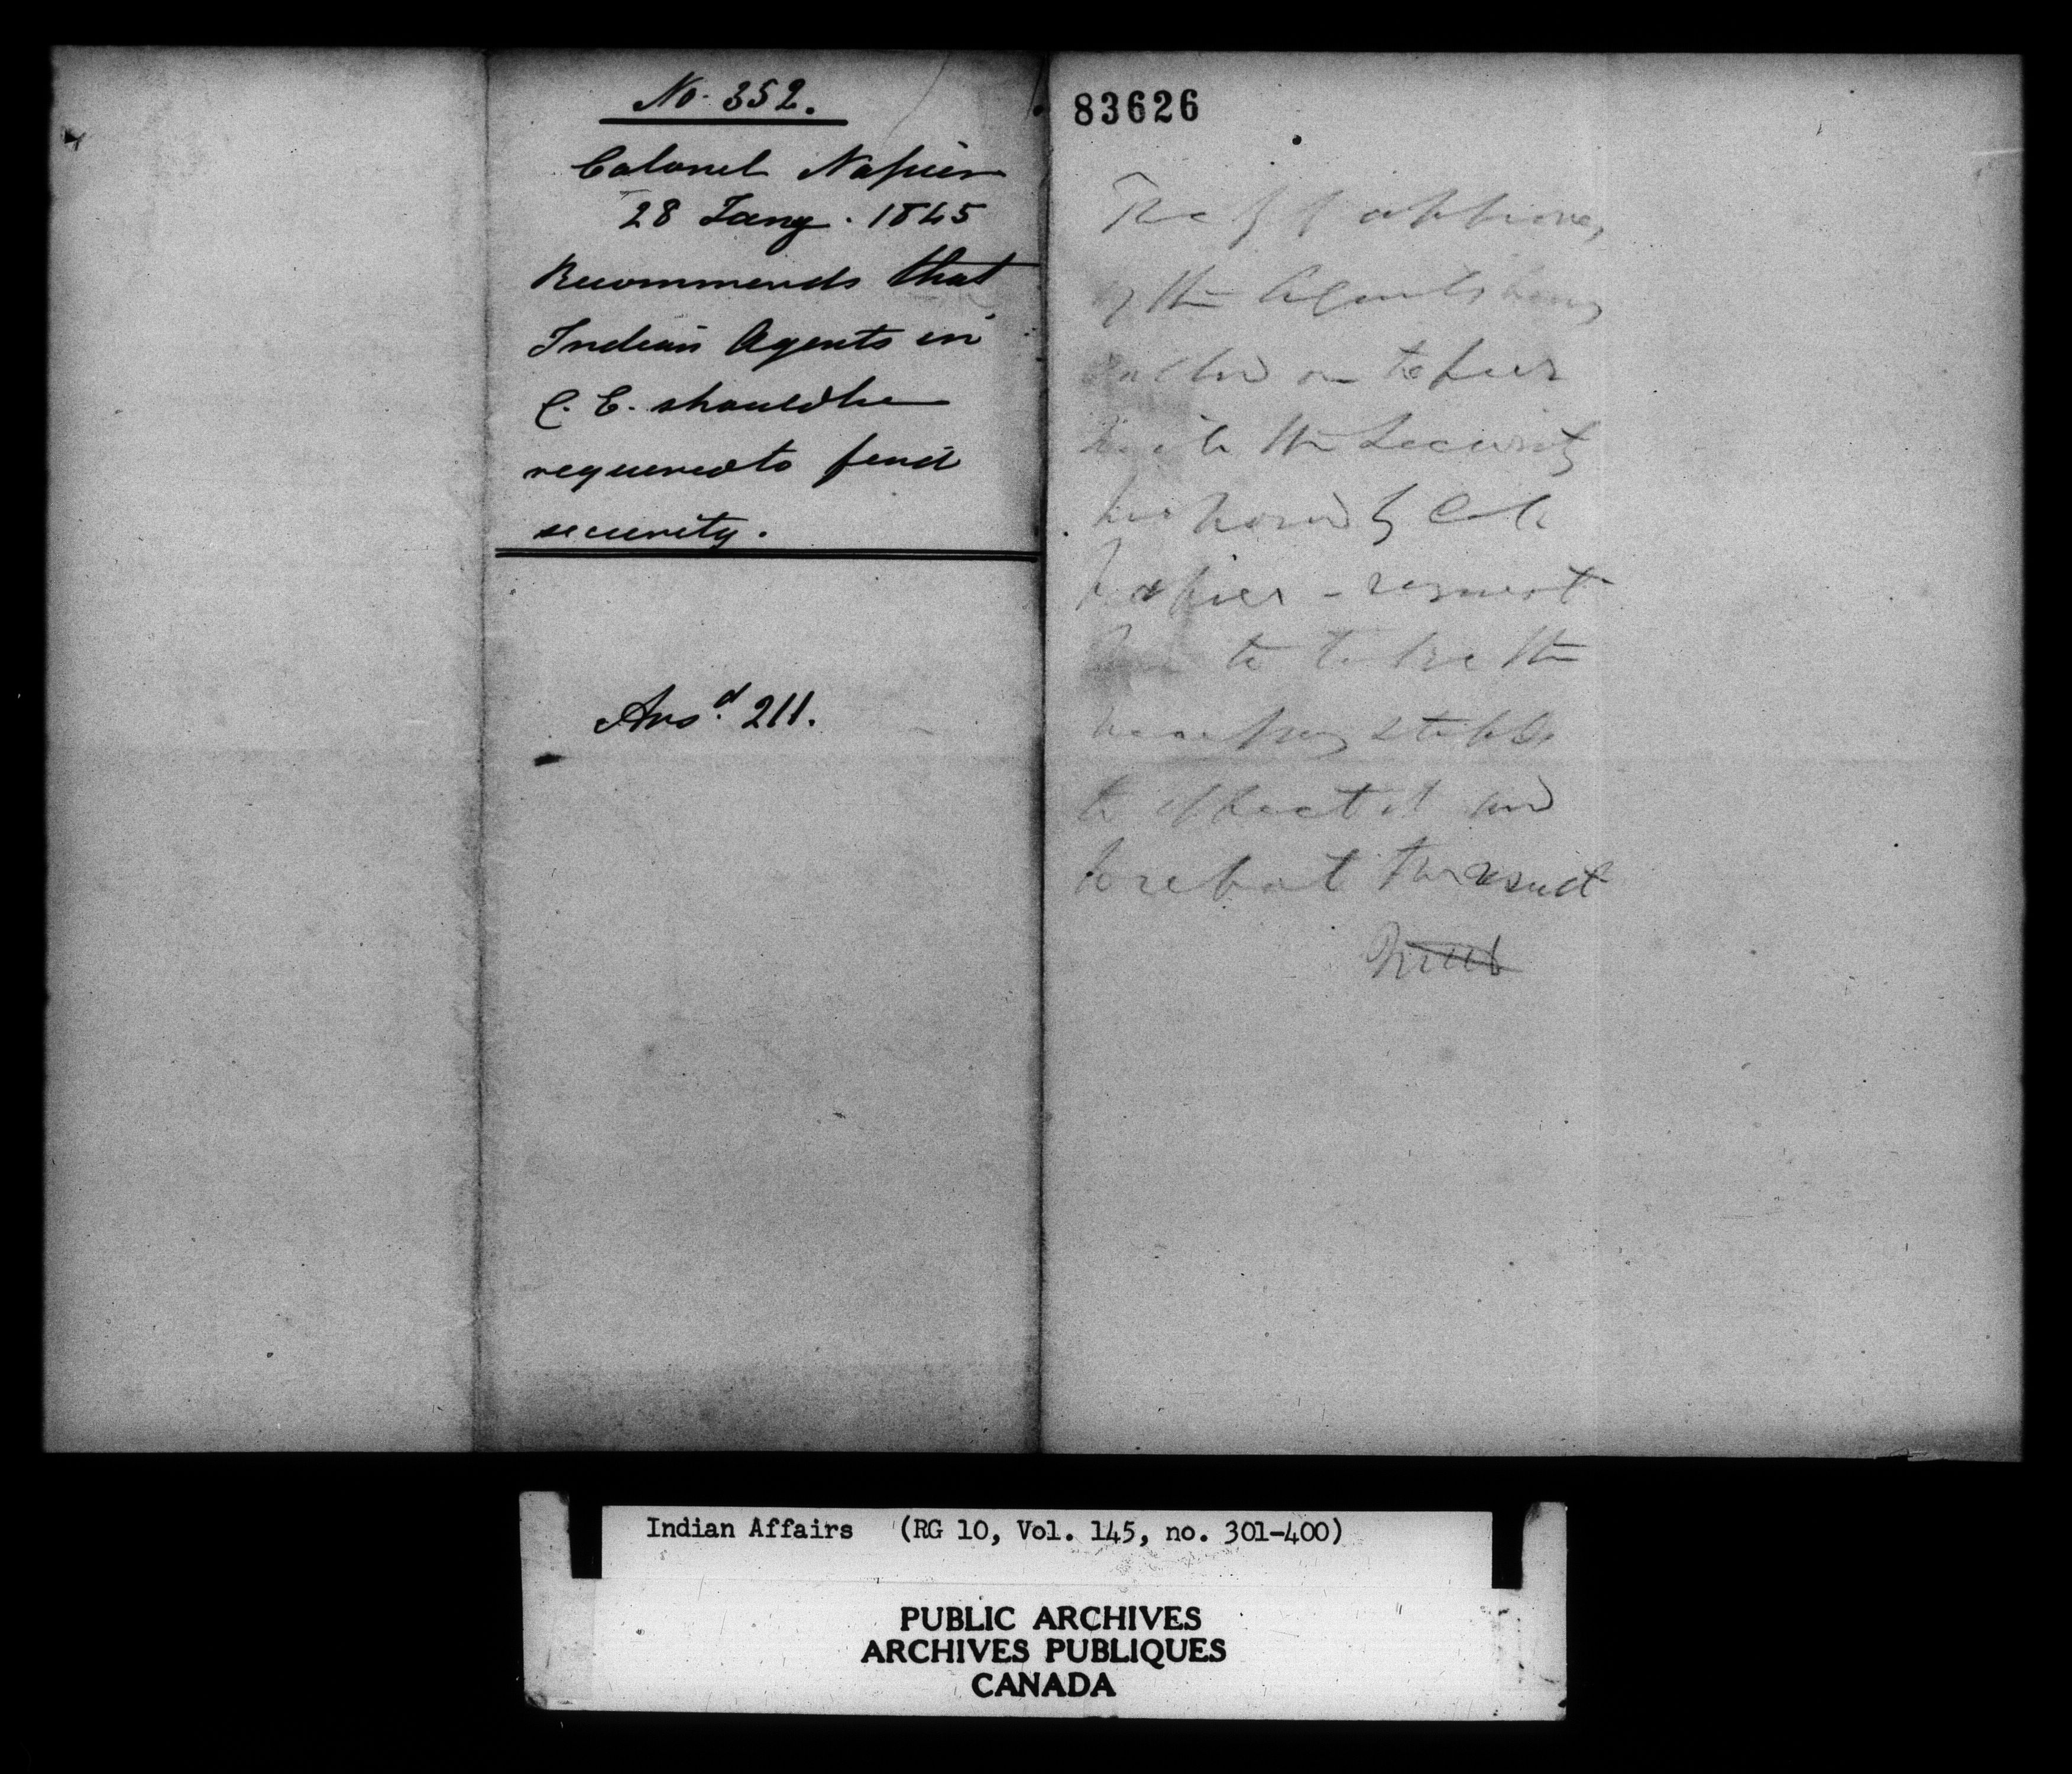 No. 352.
Colonel Napier
28 Jany. 1845
Recommends that
Indian Agents in
C. E. should be
required to find
security.
Ansd. 211.
83626
The G G approves
of the Agents being
called on to
the security
by Col
Napier - request
him to take the
necessary steps
to effect it and
report the result
Indian Affairs (RG 10, Vol. 145, no. 301-400)
PUBLIC ARCHIVES
ARCHIVES PUBLIQUES
CANADA